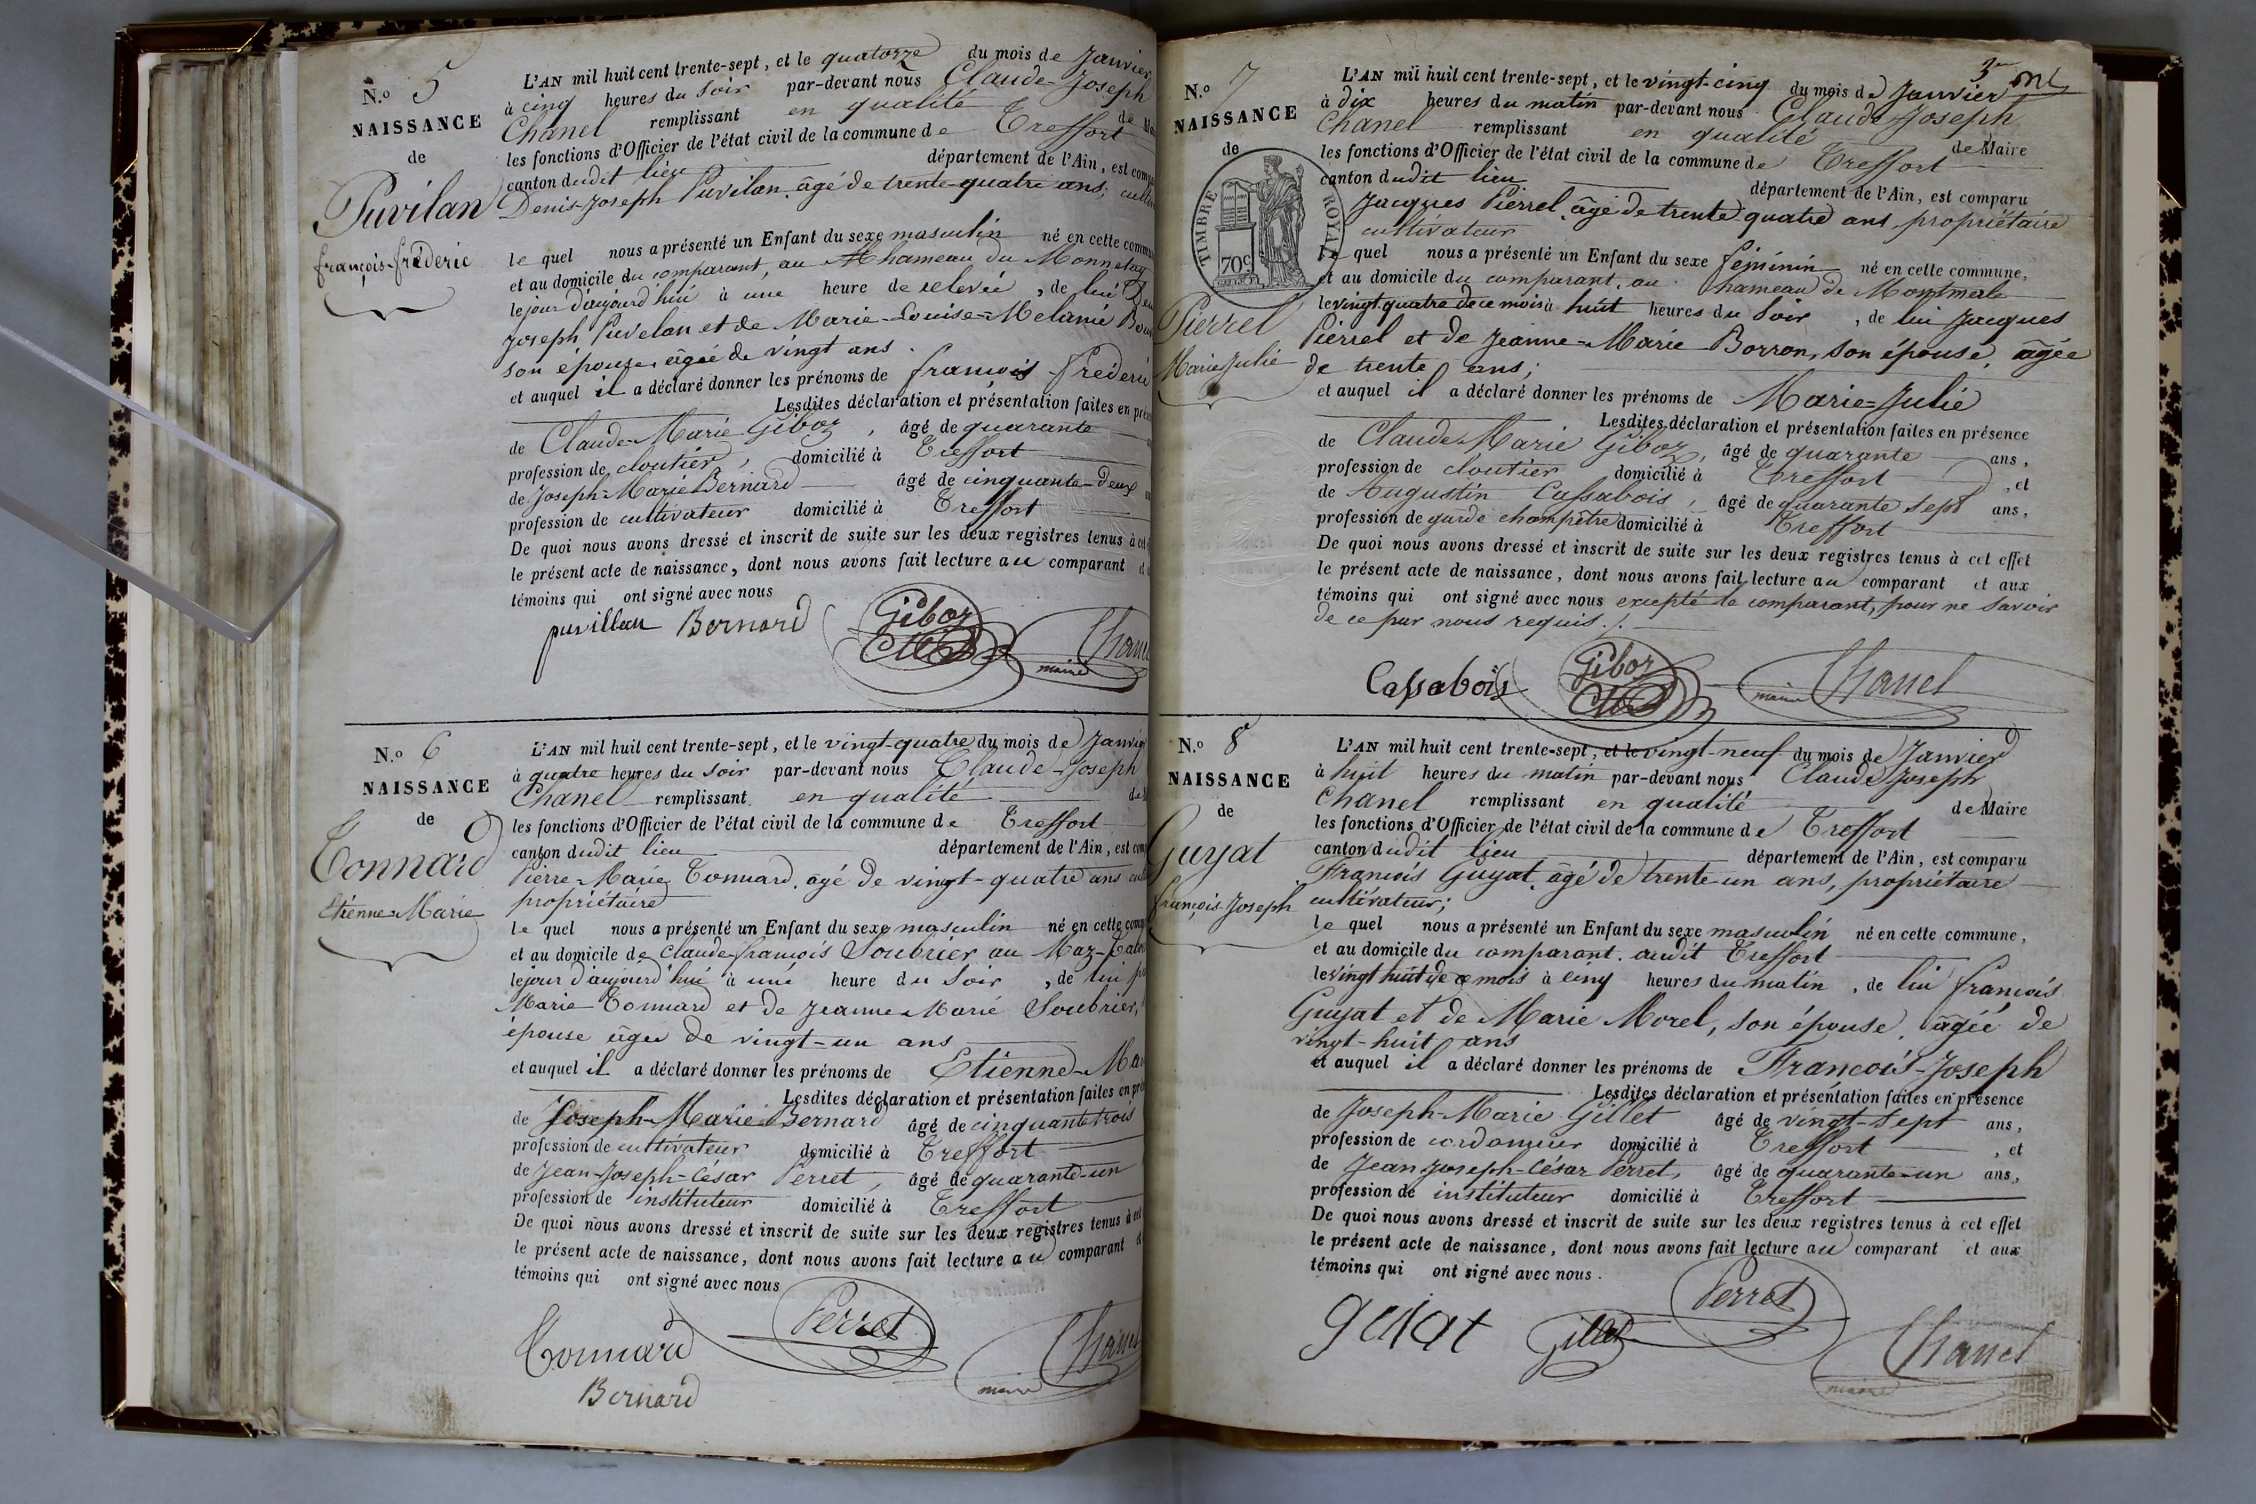 N.o 5
NAISSANCE
de
Puvilan
françois-fréderic
L'AN mil huit cent trente-sept, et le quatorze du mois de Janvier
à cinq heures du soir par-devant nous Claude-Joseph
Chanel remplissant en qualité de
les fonctions d'Officier de l'état civil de la commune de Treffort
canton dudit lieu département de l'Ain, est
Denis-Joseph Puvilan, âgé de trente-quatre ans,
le quel nous a présenté un Enfant du sexe masculin né en cette
et au domicile du comparant, au hameau du
le jour d'aujourd'hui à une heure de relevée, de lui
Joseph Puvelan et de Marie-Louise-Mélanie
son épouse, âgée de vingt ans.
et auquel il a déclaré donner les prénoms de françois fréderic
Lesdites déclaration et présentation faites en
de Claude-Marie Giboz, âgé de quarante
profession de cloutier, domicilié à Treffort
de Joseph-Marie Bernard âgé de cinquante-deux
profession de cultivateur domicilié à Treffort
De quoi nous avons dressé et inscrit de suite sur les deux registres tenus à
le présent acte de naissance, dont nous avons fait lecture au comparant
témoins qui ont signé avec nous
puvillan Bernard Giboz Chanel
maire
N.o 6
NAISSANCE
de
Tonnard
Etienne-Marie
L'AN mil huit cent trente-sept, et le vingt-quatre du mois de Janvier
à quatre heures du soir par-devant nous Claude-Joseph
Chanel remplissant en qualité
les fonctions d'Officier de l'état civil de la commune de Treffort
canton dudit lieu département de l'Ain, est
Pierre-Marie Tonnard, âgé de vingt-quatre ans
propriétaire
le quel nous a présenté un Enfant du sexe masculin né en cette
et au domicile de Claude-françois Soubrier au
le jour d'aujourd'hui à une heure du soir, de lui
Marie Tonnard et de Jeanne-Marie Soubrier,
épouse âgée de vingt-un ans
et auquel il a déclaré donner les prénoms de Etienne-
Lesdites déclaration et présentation faites en
de Joseph-Marie Bernard âgé de cinquante trois
profession de cultivateur domicilié à Treffort
de Jean-Joseph-César Perret, âgé de quarante-un
profession de instituteur domicilié à Treffort
De quoi nous avons dressé et inscrit de suite sur les deux registres tenus à
le présent acte de naissance, dont nous avons fait lecture au comparant
témoins qui ont signé avec nous
Tonnard Perret Chanel
maire
Bernard
3
N.o 7
NAISSANCE
de
TIMBRE ROYAL
70c
Pierrel
Marie Julie
L'AN mil huit cent trente-sept, et le vingt-cinq du mois de Janvier
à dix heures du matin par-devant nous Claude-Joseph
Chanel remplissant en qualité de Maire
les fonctions d'Officier de l'état civil de la commune de Treffort
canton dudit lieu département de l'Ain, est comparu
Jacques Pierrel, âgé de trente quatre ans, propriétaire
cultivateur
le quel nous a présenté un Enfant du sexe féminin né en cette commune,
et au domicile du comparant, au hameau de Montmerle
le vingt quatre de ce mois à huit heures du soir, de lui Jacques
Pierrel et de Jeanne-Marie Borron, son épouse, âgée
de trente ans;
et auquel il a déclaré donner les prénoms de Marie=Julie
Lesdites déclaration et présentation faites en présence
de Claude-Marie Giboz, âgé de quarante ans,
profession de cloutier domicilié à Treffort, et
de Augustin Cassabois, âgé de quarante sept ans,
profession de garde champêtre domicilié à Treffort
De quoi nous avons dressé et inscrit de suite sur les deux registres tenus à cet effet
le présent acte de naissance, dont nous avons fait lecture au comparant et aux
témoins qui ont signé avec nous excepté le comparant, pour ne savoir
de ce par nous requis./.
Cassabois Giboz Chanel
maire
N.o 8
NAISSANCE
de
Guyat
françois-Joseph
L'AN mil huit cent trente-sept, et le vingt-neuf du mois de Janvier
à huit heures du matin par-devant nous Claude Joseph
Chanel remplissant en qualité de Maire
les fonctions d'Officier de l'état civil de la commune de Treffort
canton dudit lieu département de l'Ain, est comparu
François Guyat, âgé de trente-un ans, propriétaire
cultivateur;
le quel nous a présenté un Enfant du sexe masculin né en cette commune,
et au domicile du comparant, audit Treffort
le vingt huit de ce mois à cinq heures du matin, de lui françois
Guyat et de Marie Morel, son épouse, âgée de
vingt-huit ans
et auquel il a déclaré donner les prénoms de François-Joseph
Lesdites déclaration et présentation faites en présence
de Joseph-Marie Gillet âgé de vingt-sept ans,
profession de cordonnier domicilié à Treffort, et
de Jean Joseph-César Perret, âgé de quarante-un ans,
profession de instituteur domicilié à Treffort
De quoi nous avons dressé et inscrit de suite sur les deux registres tenus à cet effet
le présent acte de naissance, dont nous avons fait lecture au comparant et aux
témoins qui ont signé avec nous.
guiat Gillet Perret Chanel
maire